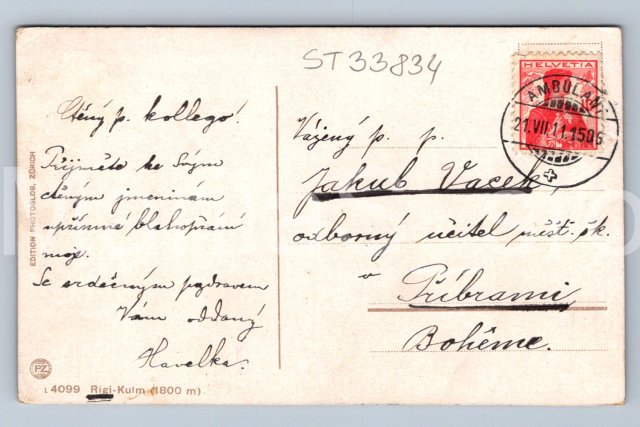 ST33834
HELVETIA
AMBULANT
21.VII.11.15
Ctěný p. kollego!
Přijměte ke Svým
ctěným jmeninám
upřímné blahopřání
moje.
Se srdečným pozdravem
Vám oddaný
Havelka.
Vážený p. p.
Jakub Vacek,
odborný učitel měšť. šk.
v Příbrami
Bohême.
EDITION PHOTOGLOB, ZÜRICH
PZ
4099 Rigi-Kulm (1800 m)